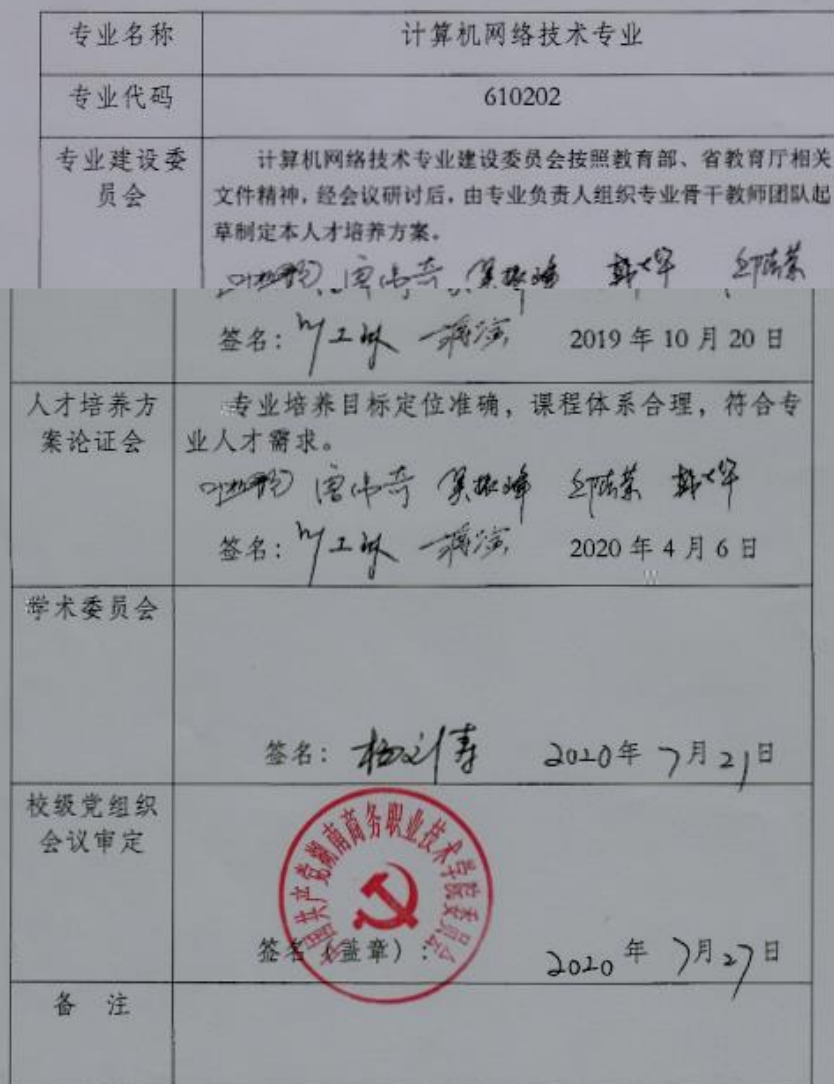 专业名称 计算机网络技术专业
专业代码 610202
专业建设委员会 计算机网络技术专业建设委员会按照教育部、省教育厅相关
文件精神,经会议研讨后,由专业负责人组织专业骨干教师团队起
草制定本人才培养方案。
签名: 2019年10月20日
人才培养方案论证会 专业培养目标定位准确,课程体系合理,符合专
业人才需求。
签名: 2020年4月6日
学术委员会
签名: 2020年7月21日
校级党组织会议审定
中国共产党湖南商务职业技术学院委员会
签名(盖章): 2020年7月27日
备 注